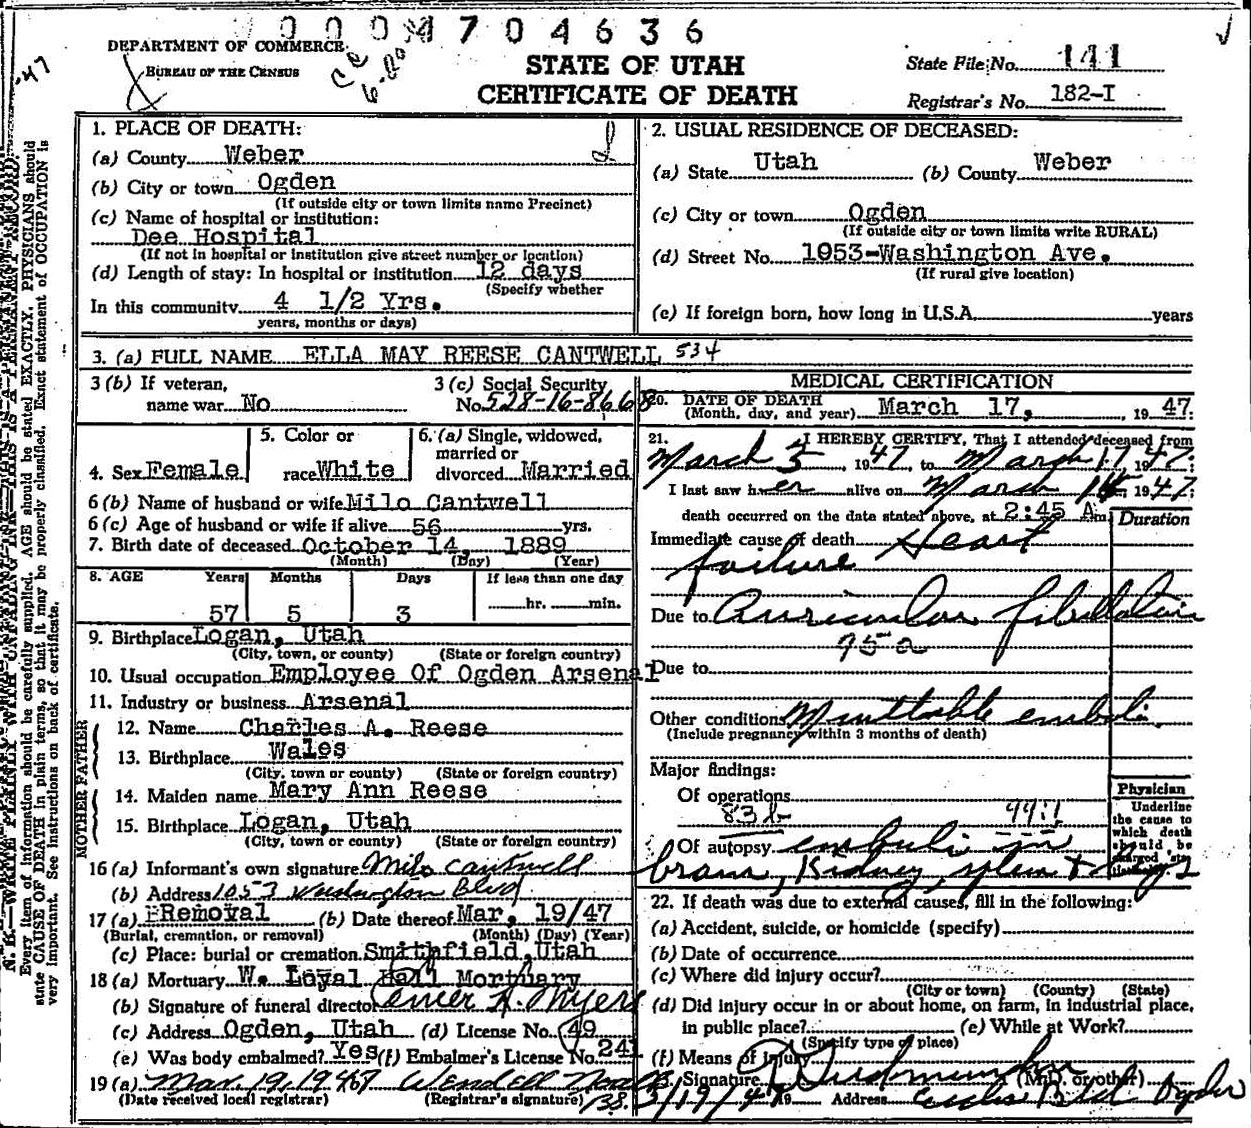 0004704636
DEPARTMENT OF COMMERCE
BUREAU OF THE CENSUS
STATE OF UTAH
CERTIFICATE OF DEATH
State File No. 141
Registrar's No. 182-I
'47
N. B.—WRITE PLAINLY WITH UNFADING INK—THIS IS A PERMANENT RECORD.
Every item of information should be carefully supplied. AGE should be stated EXACTLY. PHYSICIANS should
state CAUSE OF DEATH in plain terms, so that it may be properly classified. Exact statement of OCCUPATION is
very important. See instructions on back of certificate.
1. PLACE OF DEATH:
(a) County Weber
(b) City or town Ogden
(If outside city or town limits name Precinct)
(c) Name of hospital or institution:
Dee Hospital
(If not in hospital or institution give street number or location)
(d) Length of stay: In hospital or institution 12 days
(Specify whether
In this community 4 1/2 Yrs.
years, months or days)
2. USUAL RESIDENCE OF DECEASED:
(a) State Utah (b) County Weber
(c) City or town Ogden
(If outside city or town limits write RURAL)
(d) Street No. 1053-Washington Ave.
(If rural give location)
(e) If foreign born, how long in U.S.A. years
3. (a) FULL NAME ELLA MAY REESE CANTWELL 534
3 (b) If veteran,
name war No
3 (c) Social Security
No. 528-16-8668
4. Sex Female
5. Color or
race White
6. (a) Single, widowed,
married or
divorced Married
6 (b) Name of husband or wife Milo Cantwell
6 (c) Age of husband or wife if alive 56 yrs.
7. Birth date of deceased October 14, 1889
(Month) (Day) (Year)
8. AGE Years Months Days If less than one day
57 5 3 hr. min.
9. Birthplace Logan, Utah
(City, town, or county) (State or foreign country)
10. Usual occupation Employee Of Ogden Arsenal
11. Industry or business Arsenal
FATHER
12. Name Charles A. Reese
13. Birthplace Wales
(City, town or county) (State or foreign country)
MOTHER
14. Maiden name Mary Ann Reese
15. Birthplace Logan, Utah
(City, town or county) (State or foreign country)
16 (a) Informant's own signature Milo Cantwell
(b) Address 1053 Washington Blvd
17 (a) Removal (b) Date thereof Mar, 19/47
(Burial, cremation, or removal) (Month) (Day) (Year)
(c) Place: burial or cremation Smithfield, Utah
18 (a) Mortuary W. Loyal Hall Mortuary
(b) Signature of funeral director Myers
(c) Address Ogden, Utah (d) License No. 49
(e) Was body embalmed? Yes (f) Embalmer's License No. 241
19 (a) Mar 19, 1947 Wendell
(Date received local registrar) (Registrar's signature)
MEDICAL CERTIFICATION
20. DATE OF DEATH
(Month, day, and year) March 17, 1947
21. I HEREBY CERTIFY, That I attended deceased from
March 5, 1947, to March 17, 1947;
I last saw her alive on March 16, 1947
death occurred on the date stated above, at 2:45 Am
Duration
Immediate cause of death Heart
failure
Due to Auricular fibrillation
95a
Due to
Other conditions Multiple emboli
(Include pregnancy within 3 months of death)
Major findings:
Of operations
83b 99:1
Of autopsy emboli in
brain, Kidney, spleen + legs
Physician
Underline
the cause to
which death
should be
charged sta-
22. If death was due to external causes, fill in the following:
(a) Accident, suicide, or homicide (specify)
(b) Date of occurrence
(c) Where did injury occur?
(City or town) (County) (State)
(d) Did injury occur in or about home, on farm, in industrial place,
in public place? (e) While at Work?
(Specify type of place)
(f) Means of injury
23. Signature (M.D. or other)
3/19/47 19 Address Eccles Bld Ogden